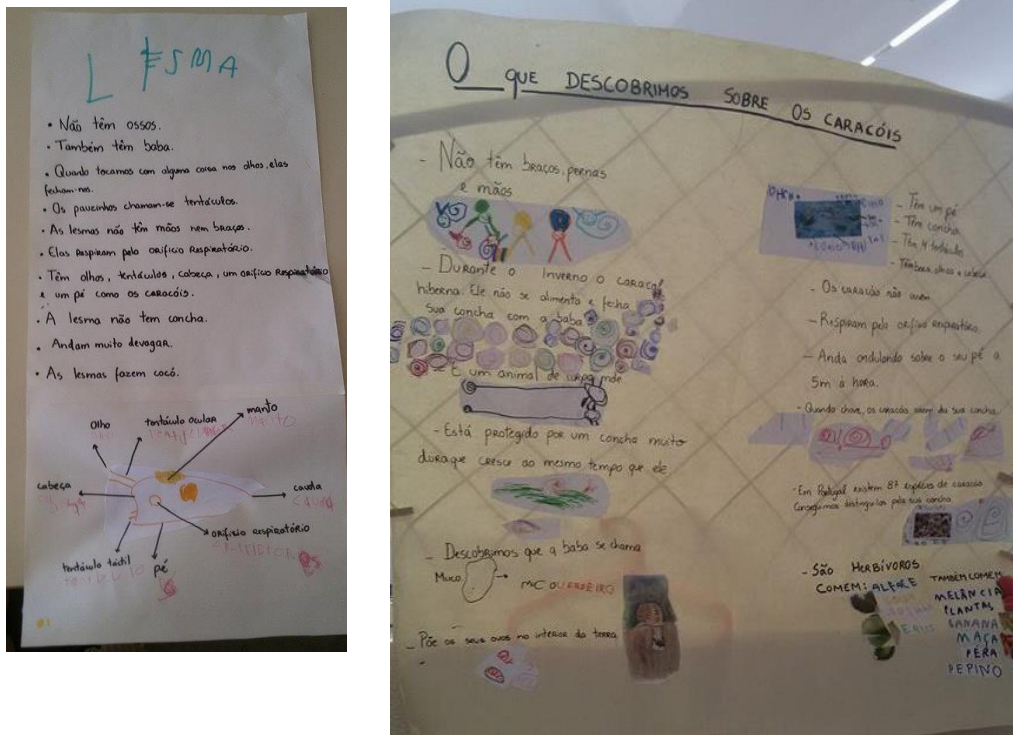 LESMA
• Não têm ossos.
• Também têm baba.
• Quando tocamos com alguma coisa nos olhos, elas
fecham-nos.
• Os pauzinhos chamam-se tentáculos.
• As lesmas não têm mãos nem braços.
• Elas Respiram pelo orifício Respiratório.
• Têm olhos, tentáculos, cabeça, um orifício Respiratório
e um pé como os caracóis.
• A lesma não tem concha.
• Andam muito devagar.
• As lesmas fazem cocó.
manto
Olho
tentáculo ocular
cabeça
cauda
CAUDA
orifício respiratório
tentáculo táctil
pé
O QUE DESCOBRIMOS SOBRE OS CARACÓIS
- Não têm braços, pernas
e mãos
- Durante o inverno o caracol
hiberna. Ele não se alimenta e fecha
sua concha com a baba.
- É um animal de
- Está protegido por um concha muito
dura que cresce ao mesmo tempo que ele
- Descobrimos que a baba se chama
Muco
- Põe os seus ovos no interior da terra
- Têm um pé
- Têm concha
- Têm 4 tentáculos
- Têm boca, olhos e cabeça
- Os caracóis não ouvem
- Respiram pelo orifício respiratório.
- Anda ondulando sobre o seu pé a
5m à hora.
- Quando chove, os caracóis saem da sua concha
- Em Portugal existem 87 espécies de caracóis
Conseguimos distingui-los pela sua concha
- São HERBÍVOROS
COMEM: ALFACE
TAMBÉM COMEM
MELÂNCIA
PLANTAS
BANANA
MAÇA
PÊRA
PEPINO